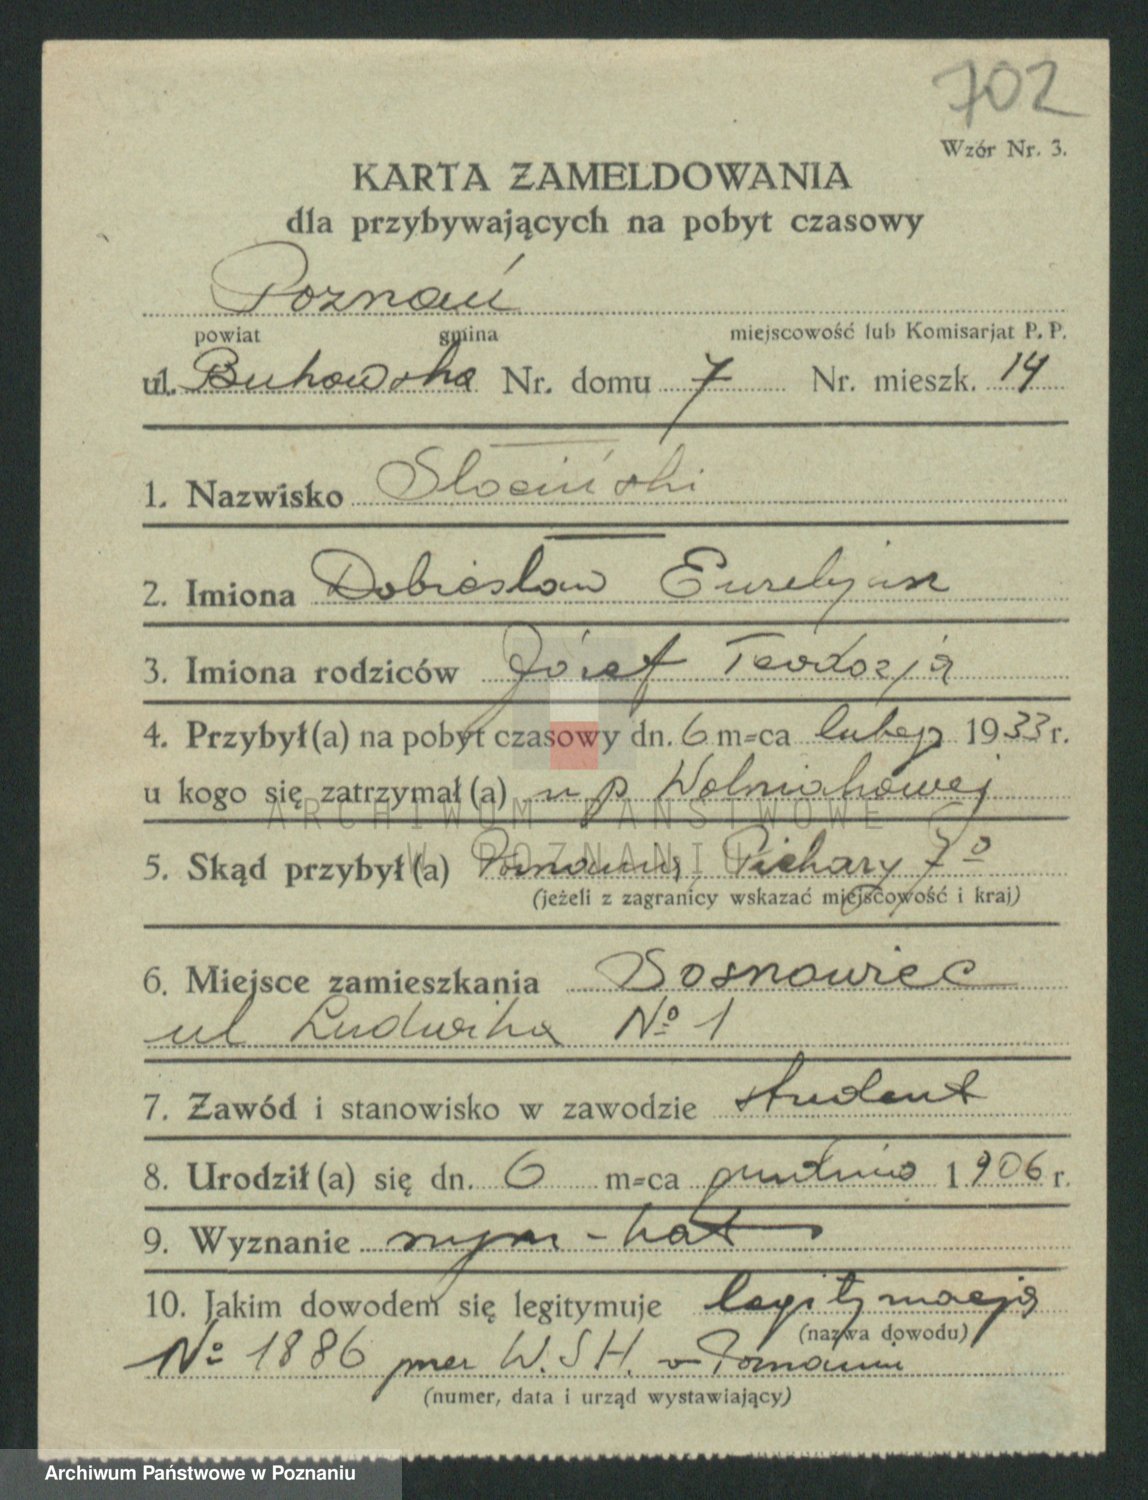 702
Wzór Nr. 3.
KARTA ZAMELDOWANIA
dla przybywających na pobyt czasowy
Poznań
powiat gmina miejscowość lub Komisarjat P. P.
ul. Bukowska Nr. domu 7 Nr. mieszk. 14
1. Nazwisko Słociński
2. Imiona Dobiesław Eurelyjan
3. Imiona rodziców Józef Teodozja
4. Przybył(a) na pobyt czasowy dn. 6 m-ca lutego 1933 r.
u kogo się zatrzymał(a) u p Wolniakowej
ARCHIWUM PAŃSTWOWE
W POZNANIU
5. Skąd przybył(a) Poznania, 7º
(jeżeli z zagranicy wskazać miejscowość i kraj)
6. Miejsce zamieszkania Sosnowiec
ul Ludwika Nº 1
7. Zawód i stanowisko w zawodzie student
8. Urodził(a) się dn. 6 m-ca grudnia 1906 r.
9. Wyznanie rzym-kat
10. Jakim dowodem się legitymuje legitymacją
(nazwa dowodu)
Nº 1886 przez W.S.H. w Poznaniu
(numer, data i urząd wystawiający)
Archiwum Państwowe w Poznaniu